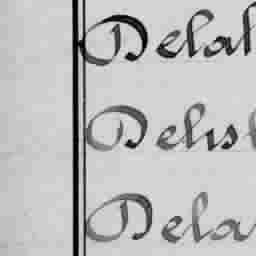 Delah
Delis
Dela